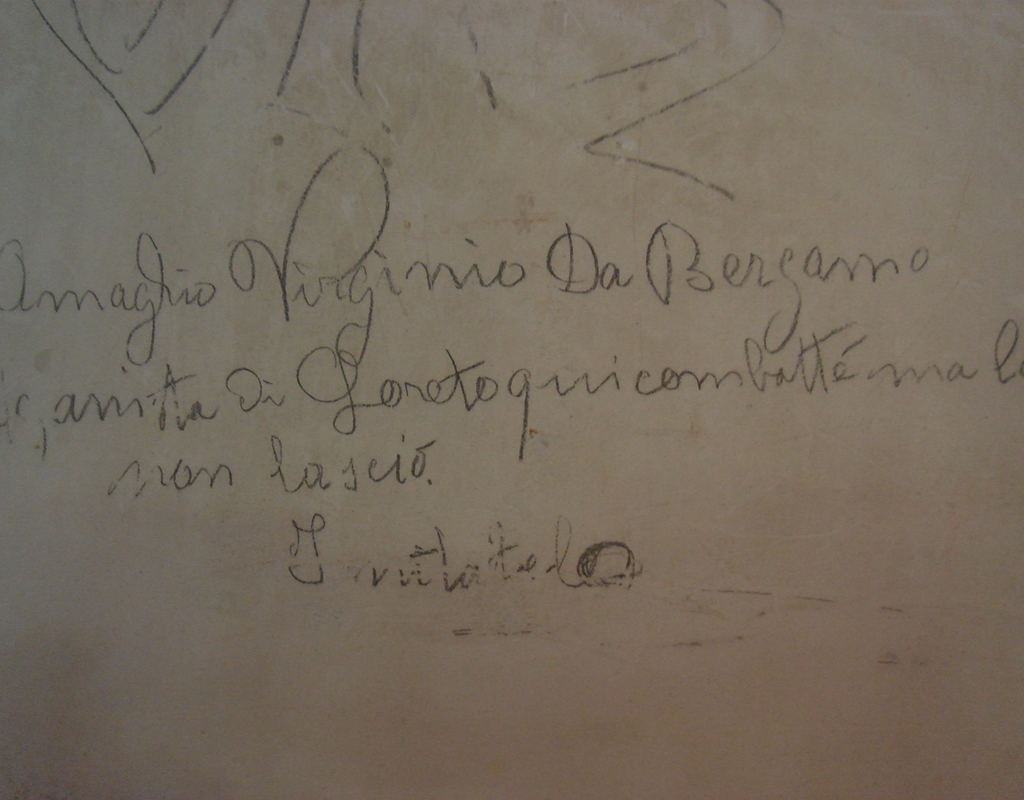 Amaglio Virginio Da Bergamo
di Loreto qui combatté ma la
non lasciò.
Imitatelo